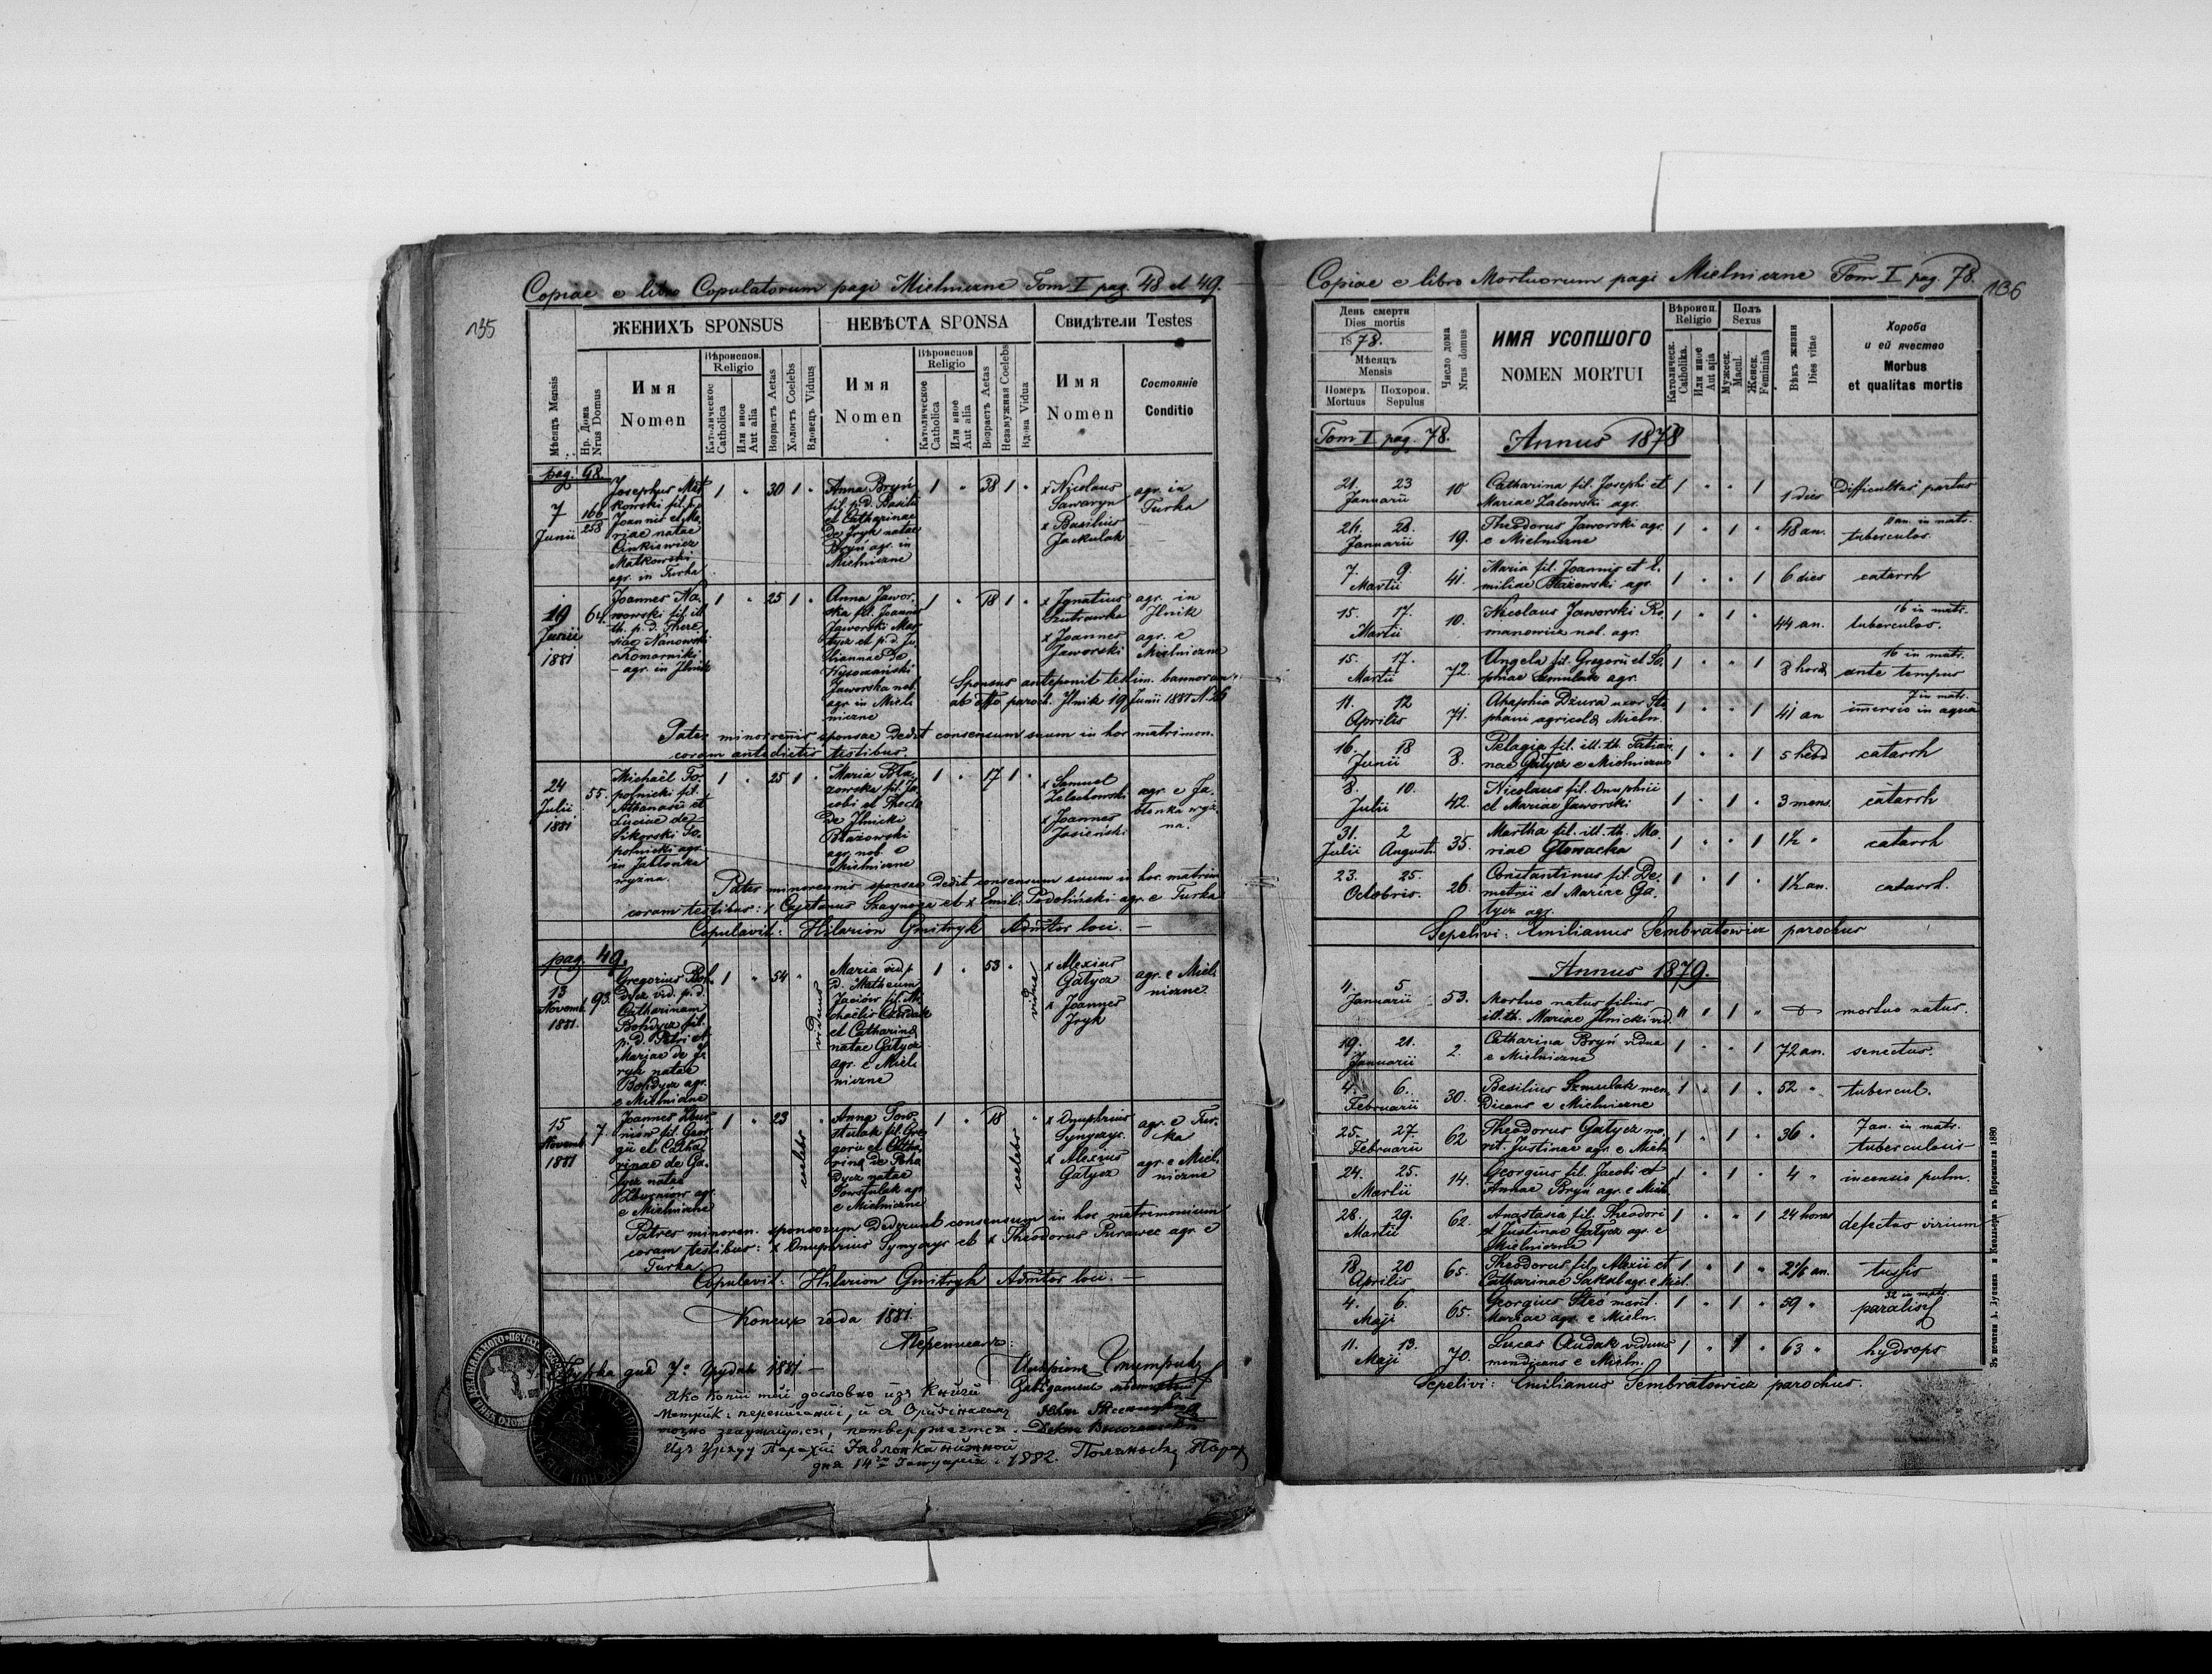 Copiae e libro Copulatorum pagi Mielniczne Tom I pag. 48 et 49.
135
ЖЕНИХЪ SPONSUS
НЕВѢСТА SPONSA
Свидѣтели Testes
Мѣсяцъ Mensis
Нр. Дома
Nrus Domus
Имя
Nomen
Вѣроиспов.
Religio
Католическое
Catholica
Или иное
Aut alia
Возрастъ Aetas
Холостъ Coelebs
Вдовецъ Viduus
Имя
Nomen
Вѣроиспов
Religio
Католическое
Catholica
Или иное
Aut alia
Возрастъ Aetas
Незамужная Coelebs
Вдова Vidua
Имя
Nomen
Состояніе
Conditio
pag. 48.
7
Junii
166
258
Josephus Mat
kowski fil. p. d.
Joannis et Ma
riae natae
Cinkiewicz
Matkowski
agr. in Turka
1 " 30 1 "
Anna Bryń
fil. p. d. Basilii
et Catharinae
de Jryk natae
Bryń agr. in
Mielniczne
1 " 38 1 "
x Nicolaus
Sawaryn
x Basilius
Jackulak
agr. in
Turka
19
Junii
1881
64
Joannes Na
nowski fil. ill.
th. p. d. There
siae Nanowski
e Komarniki
agr. in Jlnik
1 " 25 1 "
Anna Jawor
ska fil. Joannis
Jaworski Mar
tycz et p. d. Ju
liannae de
Wysoczański
Jaworska nob.
agr. in Miel
niczne
1 " 18 1 "
x Ignatius
Szutrawka
x Joannes
Jaworski
agr. in
Jlnik
agr. e
Mielniczne
Sponsus anteponit testim. bannorum
ab offo paroch. Jlnik 19 Junii 1881 N. 26
Pater minorennis sponsae dedit consensum suum in hoc matrimon.
coram antedictis testibus.
24
Julii
1881
55.
Michaël To
polnicki fil.
Athanasii et
Luciae de
Sikorski To
polnicki agr.
in Jabłonka
wyżna.
1 " 25 1 "
Maria Bła
żowska fil. Ja
cobi et Thecla
de Jlnicki
Błażowski
agr. nob. e
Mielniczne
1 " 17 1 "
x Samuel
Zelechowski
x Joannes
Jasieński
agr. e Ja
błonka wyż
na.
Pater minorennis sponsae dedit consensum suum in hoc matrim
coram testibus: x Cajetanus Szaynoga et x Emil. Podoliński agr. e Turka
Copulavit: Hilarion Gmitryk Admtor loci. —
pag. 49.
13
Novemb.
1881.
93.
Gregorius Boh
dycz vid. p. d.
Catharinam
Bohdycz fil.
p. d. Petri et
Mariae de Jr
ryk natae
Bohdycz agr.
e Mielniczne
1 " 54 "
viduus
Maria vid. p.
d. Matheum
Jaciów fil. Mi
chaelis Czudak
et Catharina
natae Gatycz
agr. e Miel
niczne
1 " 53 "
vidua
x Alexius
Gatycz
x Joannes
Jryk
agr. e Miel
niczne.
15
Novemb.
1881
7.
Joannes Zbur
niow fil. Geor
gii et Catha
rinae de Ga
tycz natae
Zburniow agr.
e Mielniczne
1 " 23
coelebs
"
Anna Tow
stulak fil. Gre
gorii et Catha
rina de Boha
dycz natae
Towstulak agr.
e Mielniczne
1 " 18
coelebs
"
x Onuphrius
Synyczyc
x Alexius
Gatycz
agr. e Tur
ka
agr. e Miel
niczne
Patres minoren. sponsorum dederunt consensum in hoc matrimonium
coram testibus: x Onuphrius Synyczyc et x Theodorus Purawec agr. e
Turka.
Copulavit: Hilarion Gmitryk Admtor loci. —
Конецъ года 1881.
Переписалъ:
Турка дня 7. Грудня 1881.—
Завѣдатель
Яко копіи тіи дословно изъ Книги
Метрик. переписаніи, и съ Оригиналомъ
точно згаджаются, потверджается.
Изъ Уряду Парохіи Яблонка нижной
дня 14го Януарія 1882.
Copiae e libro Mortuorum pagi Mielniczne Tom I pag. 78.
136
День смерти
Dies mortis
1878.
Мѣсяцъ
Mensis
Померъ
Mortuus
Похорон.
Sepulus
Число дома
Nrus domus
ИМЯ УСОПШОГО
NOMEN MORTUI
Вѣроисп.
Religio
Католическ.
Catholika.
Или иное
Aut alia
Полъ
Sexus
Мужеск.
Macul.
Женск.
Feminina
Вѣкъ жизни
Dies vitae
Хороба
и ей ячество
Morbus
et qualitas mortis
Tom I pag. 78.
Annus 1878
21. 23
Januarii
10
Catharina fil. Josephi et
Mariae Zatowski agr.
1 " " 1
1 dies
Difficultas partus
26. 28.
Januarii
19.
Theodorus Jaworski agr.
e Mielniczne
1 " 1 "
48 an.
11 an. in matr.
tuberculos.
7. 9.
Martii
41.
Maria fil. Joannis et E.
miliae Błażewski agr.
1 " " 1
6 dies
catarrh
15. 17.
Martii
10.
Nicolaus Jaworski Ro
manowicz nob. agr.
1 " 1 "
44 an.
16 in matr.
tuberculos.
15. 17.
Martii
72.
Angela fil. Gregorii et So
phiae Szmulak agr.
1 " " 1
8 horas
16 in matr.
ante tempus
11. 12
Aprilis
71.
Ahaphia Dziura uxor Ste
phani agricolae Mieln.
1 " " 1
41 an
7 in matr.
imersio in aqua
16. 18
Junii
8.
Pelagia fil. ill. th. Tatian
nae Gatycz e Mielniczne
1 " " 1
5 hebd
catarrh
8. 10.
Julii
42.
Nicolaus fil. Onuphrii
et Mariae Jaworski
1 " 1 "
3 mens.
catarrh
31. 2
Julii Augusti
35.
Martha fil. ill. th. Ma
riae Głowacka
1 " " 1
1½ "
catarrh
23. 25.
Octobris.
26.
Constantinus fil. De
metrii et Mariae Ga
tycz agr.
1 " 1 "
1½ an.
catarrh.
Sepelivi: Emilianus Sembratowicz parochus
Annus 1879.
4. 5
Januarii
53.
Mortuo natus filius
ill. th. Mariae Jlnicki vid.
" " 1 "
mortuo natus.
19. 21.
Januarii
2.
Catharina Bryń vidua
e Mielniczne
1 " " 1
72 an.
senectus.
4. 6.
Februarii
30.
Basilius Szmulak men
dicans e Mielniczne
1 " 1 "
52 "
tubercul.
25. 27.
Februarii
62
Theodorus Gatycz ma
rit Justinae agr. e Mieln
1 " 1 "
36 "
7 an. in matr.
tuberculosis
24. 25.
Martii
14.
Georgius fil. Jacobi et
Annae Bryń agr. e Mieln
1 " 1 "
4 "
incensio pulm.
28. 29.
Martii
62.
Anastasia fil. Theodori
et Justinae Gatycz agr. e
Mielniczne
1 " " 1
24 horas
defectus virium
18. 20
Aprilis
65.
Theodorus fil. Alexii et
Catharinae Sakal agr. e Miel.
1 " 1 "
2 1/6 an.
tussis
4. 6.
Maji
65.
Georgius Steć marit.
Mariae agr. e Mieln.
1 " 1 "
59 "
32 in matr.
paralis
11. 13.
Maji
70.
Lucas Czudak viduus
mendicans e Mieln.
1 " 1 "
63 "
hydrops
Sepelivi: Emilianus Sembratowicz parochus.